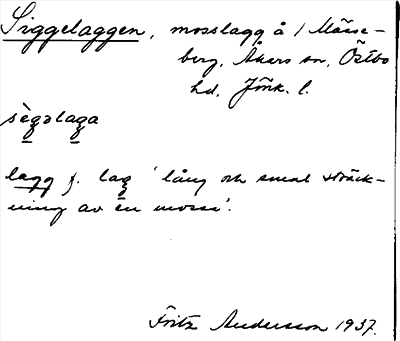 Siggelaggen, mosslagg å / Mässe-
berg, Åkers sn, Östbo
hd, Jönk. l.
sègəlaga
lagg f. lag 'lång och smal sträck-
ning av en mosse'.
Fritz Andersson 1937.